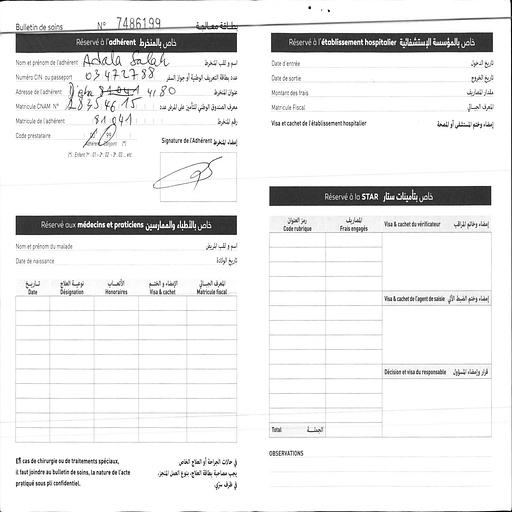 Bulletin de soins N° 7486199 بطاقة معالجة
Réservé à l'adhérent خاص بالمنخرط
Nom et prénom de l'adhérent Adala Salah اسم و لقب المنخرط
Numéro CIN ou passeport 03472788 عدد بطاقة التعريف الوطنية أو جواز السفر
Adresse de l'adhérent 4180 عنوان المنخرط
Matricule CNAM N° رقم معرف الصندوق الوطني للتأمين على المرض عدد
Matricule de l'adhérent 81041 رقم المنخرط
Code prestataire
Signature de l'Adhérent إمضاء المنخرط
Réservé aux médecins et praticiens خاص بالأطباء والممارسين
Nom et prénom du malade اسم و لقب المريض
Date de naissance تاريخ الولادة
تاريخ نوعية العلاج الأتعاب الإمضاء و الختم المعرف الجبائي
Date Désignation Honoraires Visa & cachet Matricule fiscal
En cas de chirurgie ou de traitements spéciaux,
il faut joindre au bulletin de soins, la nature de l'acte
pratiqué sous pli confidentiel.
في حالات الجراحة أو العلاج الخاص
يجب مصاحبة بطاقة العلاج، بنوع العمل المنجز،
في ظرف سري.
Réservé à l'établissement hospitalier خاص بالمؤسسة الإستشفائية
Date d'entrée تاريخ الدخول
Date de sortie تاريخ الخروج
Montant des frais مقدار المصاريف
Matricule Fiscal المعرف الجبائي
Visa et cachet de l'établissement hospitalier إمضاء وختم المستشفى أو المصحة
Réservé à la STAR خاص بتأمينات ستار
رمز العنوان المصاريف
Code rubrique Frais engagés
Visa & cachet du vérificateur إمضاء وخاتم المراقب
Visa & cachet de l'agent de saisie إمضاء وختم الضبط الآلي
Décision et visa du responsable قرار وإمضاء المسؤول
Total الجملة
OBSERVATIONS